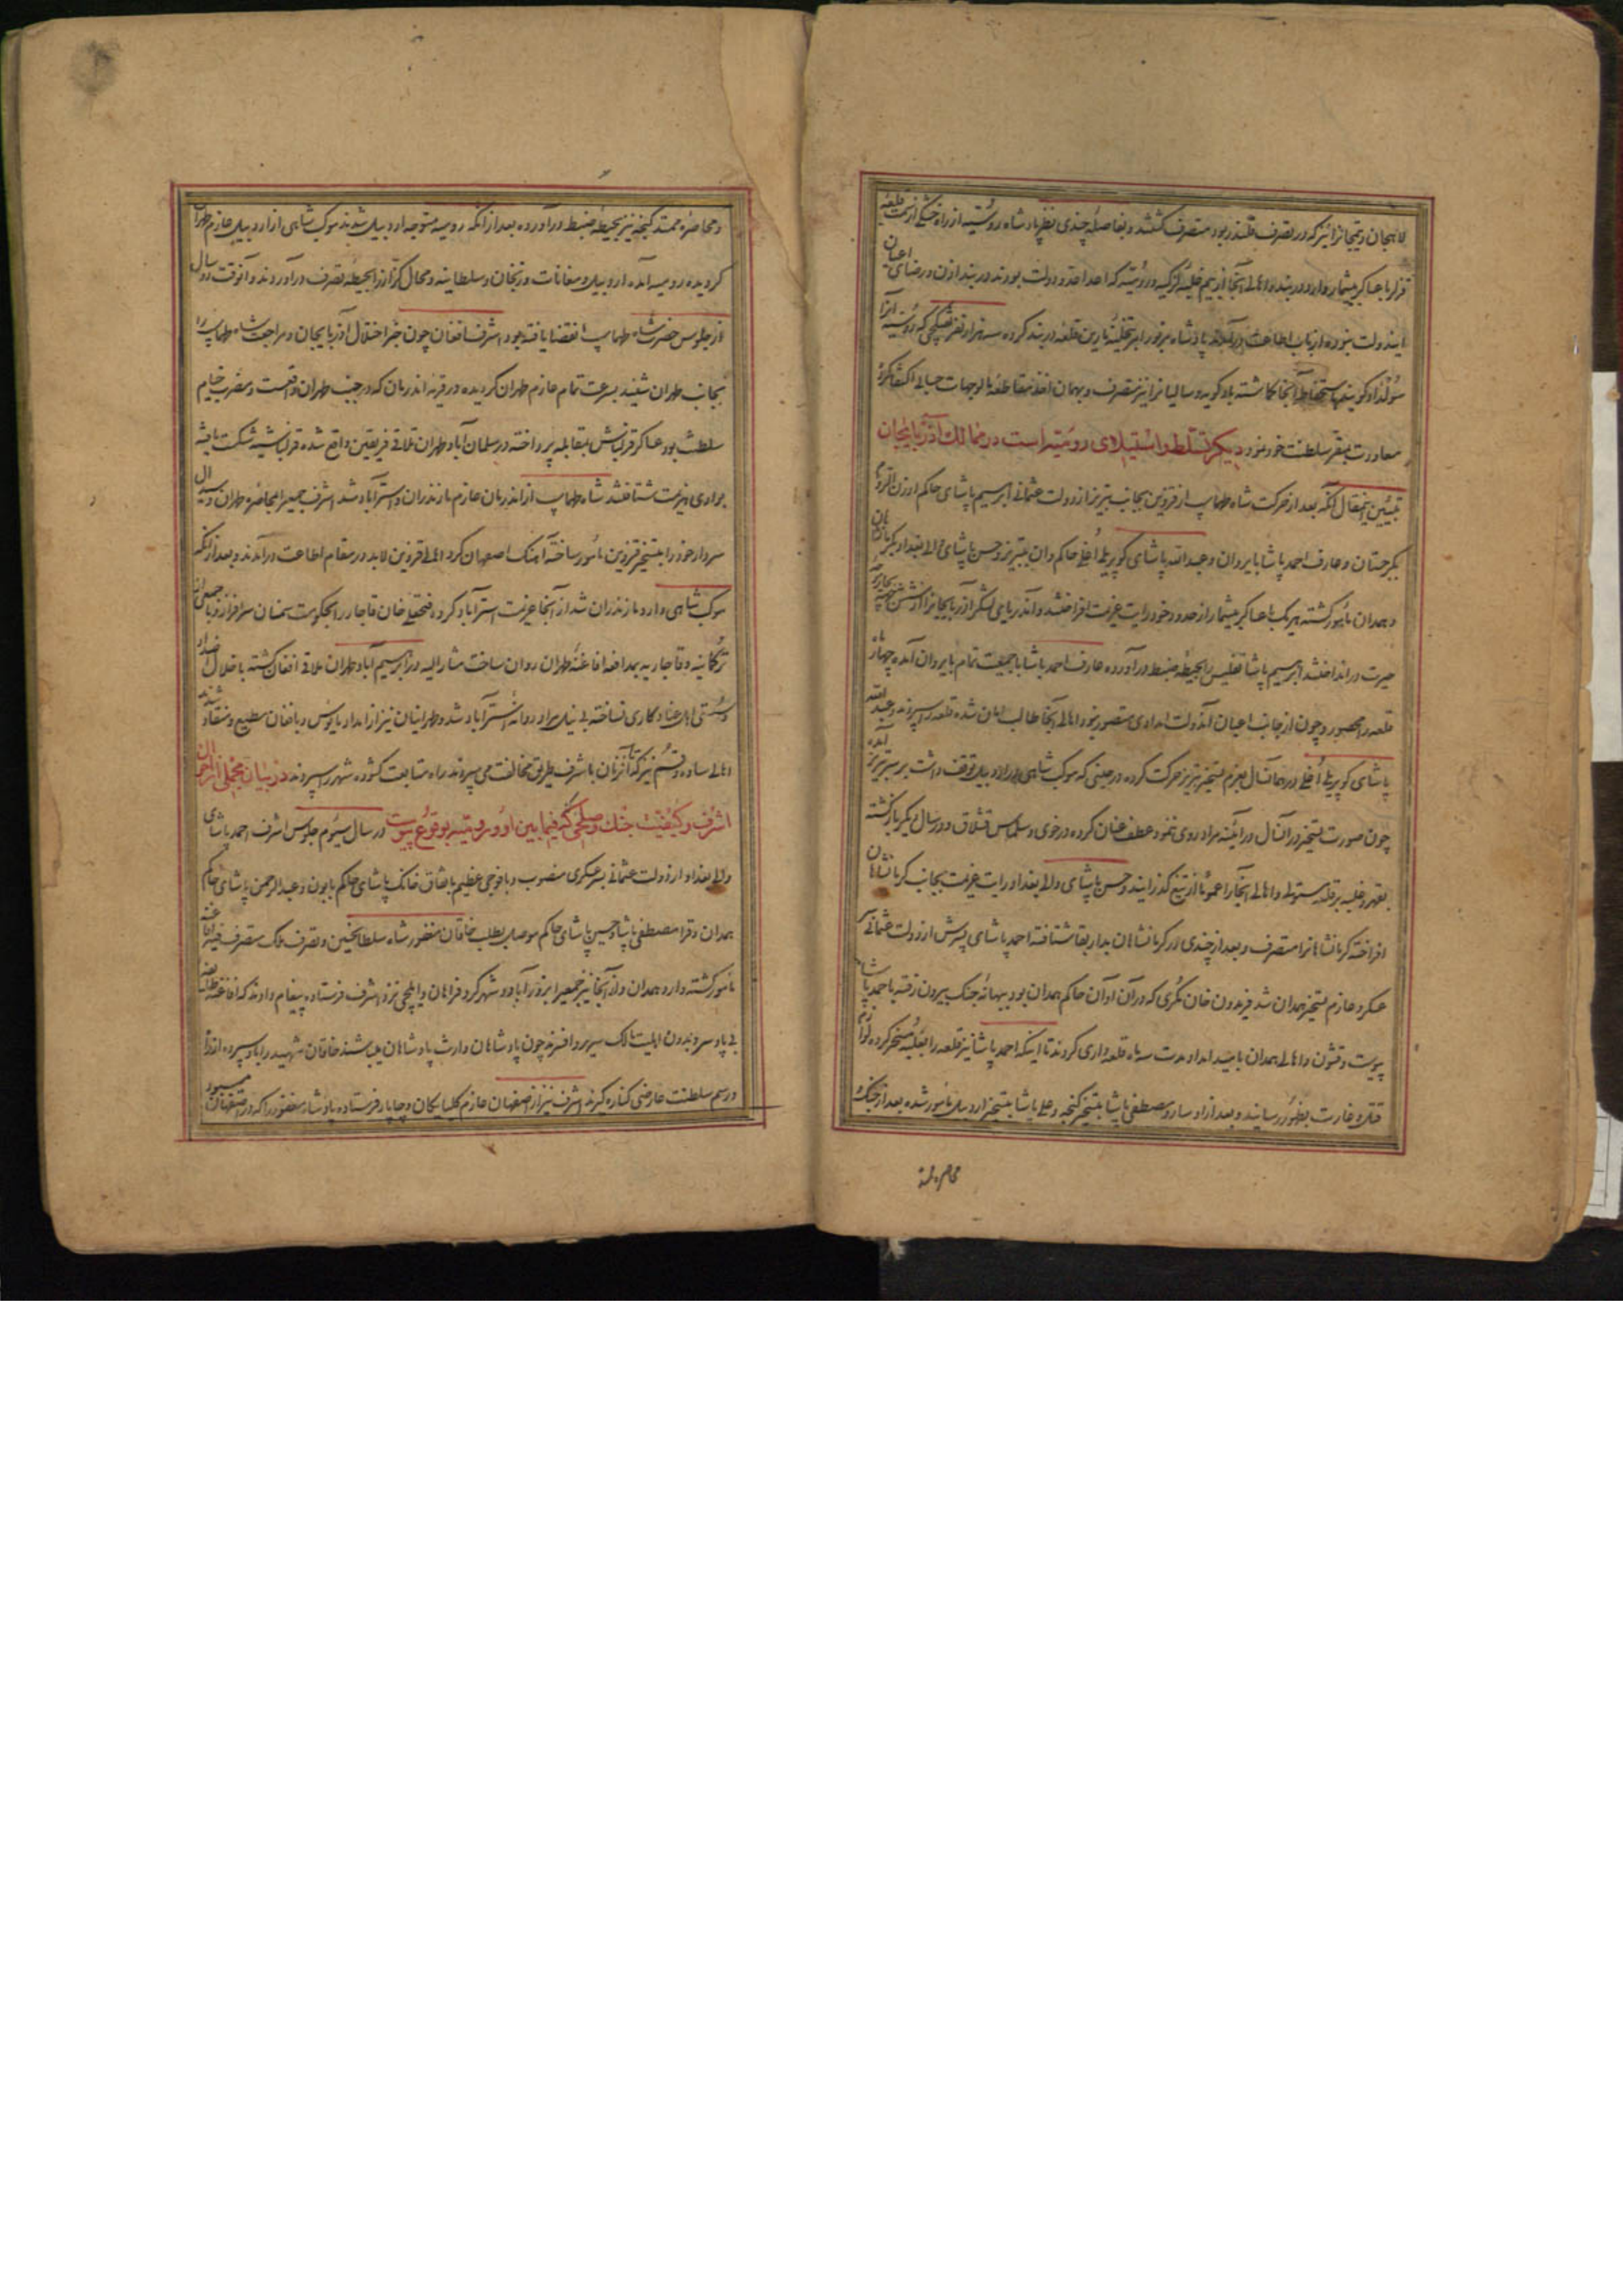 لاهیجان و تیمجانرا نیز که در تصرف قلندر بود متصرف گشتند و بفاصلهٔ چندی نظر پادشاه روسیه از راه خشکی از سمت قلعهٔ
قزلر با عساکر بیشمار وارد دربند و اهالی آنجا از بیم غلبهٔ لزگیه و روسیه که اعدا عدو دولت بودند در بند اذن و رضای اعیان
ایندولت نبوده از باب اطاعت درآمدند پادشاه مزبور امر بتخلیهٔ نارین قلعه دربند کرده سه هزار نفر تفنگچی که روسیه آنرا
سولداد گویند بمستحفظی آنجا گماشته بادکوبه و سالیانرا نیز متصرف و بهمان اخذ مقاطعه مالوجهات جبالی اکتفا کرده
معاودت بمقر سلطنت خود نمود دیگر تسلط و استیلای رومیه است در ممالک آذربایجان
تبیین اینمقال آنکه بعد از حرکت شاه طهماسب از قزوین بجانب تبریز از دولت عثمانی ابرهیم پاشای حاکم ارزن الروم
بگرجستان و عارف احمد پاشا بایروان و عبدالله پاشای کوپریلی اغلی حاکم وان بتبریز و حسن پاشای والی بغداد بکرمانشاهان
و همدان مأمور گشته هر یک با عساکر بیشمار از حدود خود رایت عزیمت افراختند و آندریای لشکر آذربایجانرا از شش جهة
حیرت درانداختند ابرهیم پاشا تفلیس را بحیطهٔ ضبط درآورده عارف احمد پاشا با جمعیت تمام بایروان آمده چهار ماه
قلعه را محصور و چون از جانب اعیان آندولت امدادی متصور نبود اهالی آنجا طالب امان شده قلعه را سپردند و عبدالله
پاشای کوپریلی اغلی در همانسال بعزم تسخیر تبریز حرکت کرده در حینی که موکب شاهی در اردبیل توقف داشت بر سر تبریز آمده
چون صورت تسخیر در آنسال در آیینه مراد روی ننمود عطف عنان کرده در خوی و سلماس قشلاق و در سال دیگر بازگشته
بقهر و غلبه بر قلعه مستولی و اهالی آنجا را عموماً از تیغ گذرانیدند و حسن پاشای والی بغداد رایت عزیمت بجانب کرمانشاهان
افراخته کرمانشاهانرا متصرف و بعد از چندی در کرمانشاهان بدار بقا شتافته احمد پاشای پسرش از دولت عثمانی سر
عسکر و عازم تسخیر همدان شد فریدون خان مکری که در آن اوان حاکم همدان بود ببهانهٔ جنگ بیرون رفته باحمد پاشا
پیوست و قشون و اهالی همدان بامید امداد مدت سه ماه قلعه داری کردند تا اینکه احمد پاشا نیز قلعه را بغلبه مسخر کرده لوازم
قتل و غارت بظهور رسانید و بعد از او سارو مصطفی پاشا بتسخیر گنجه و علی پاشا بتسخیر اردبیل مأمور شده بعد از جنگ
محاصره ممتد
و محاصره ممتد گنجه نیز بحیطه ضبط درآورده بعد از آنکه رومیه متوجه اردبیل شدند موکب شاهی از اردبیل عازم طهران
گردیده رومیه آمده اردبیل و مغانات و زنجان و سلطانیه و محال کزاز را بحیطه تصرف درآوردند و آنوقت دو سال
از جلوس حضرت شاه طهماسب انقضا یافته بود اشرف افغان چون خبر اختلال آذربایجان و مراجعت شاه طهماسب را
بجانب طهران شنید بسرعت تمام عازم طهران گردیده در قریه اندرمان که در جنب طهران واقعست و مضرب خیام
سلطنت بود عساکر قزلباش بمقابله پرداخته در سلمان آباد طهران تلاقی فریقین واقع شده قزلباشیه شکست یافته
بوادی هزیمت شتافتند شاه طهماسب از اندرمان عازم مازندران و استرآباد شد اشرف جمعی را بمحاصره طهران و سیدال
سردار خود را بتسخیر قزوین مأمور ساخته آهنک اصفهان کرد اهالی قزوین لابد در مقام اطاعت درآمدند و بعد از آنکه
موکب شاهی وارد مازندران شد از آنجا عزیمت استرآباد کرد و فتحعلی خان قاجار را بحکومت سمنان سرافراز و با جمعی از
ترکمانیه و قاجاریه بمدافعه افاغنه طهران روان ساخت مشارالیه در ابرهیم آباد طهران ملاقی افغان گشته باخلال اضداد
و سستی اهل عناد کاری نساخته بی نیل مراد روانه استرآباد شد و طهرانیان نیز از امداد مایوس و بافغان مطیع و منقاد شدند
اهالی ساوه و قم نیز که تا آنزمان با اشرف طریق مخالفت می سپردند راه متابعت گشوده شهر را سپردند در بیان مجملی از احوال
اشرف و کیفیت جنک و صلحی که فیمابین او و رومیه بوقوع پیوست در سال سیوم جلوس اشرف احمد پاشای
والی بغداد از دولت عثمانی بسرعسکری منصوب و با فوجی عظیم باتفاق خانک پاشای حاکم بابون و عبدالرحمن پاشای حاکم
همدان و قرا مصطفی پاشا و حسین پاشای حاکم موصل بطلب خاقان مغفور شاه سلطانحسین و تصرف ملک متصرف فیه افاغنه
مأمور گشته وارد همدان و از آنجا نیز جمعی را بدزآباد و شهر کرد فراهان و ایلچی نزد اشرف فرستاده پیغام دادند که افاغنه طایفه
بی پا و سر و بدون اهلیت مالک سریر و افسرند چون پادشاهان وارث پادشاهان میباشند خاقان شهید را بما سپرده از اسم
و رسم سلطنت عارضی کناره گیرند اشرف نیز از اصفهان عازم گلپایگان و چاپار فرستاده پادشاه مغفور را که در اصفهان محبوس